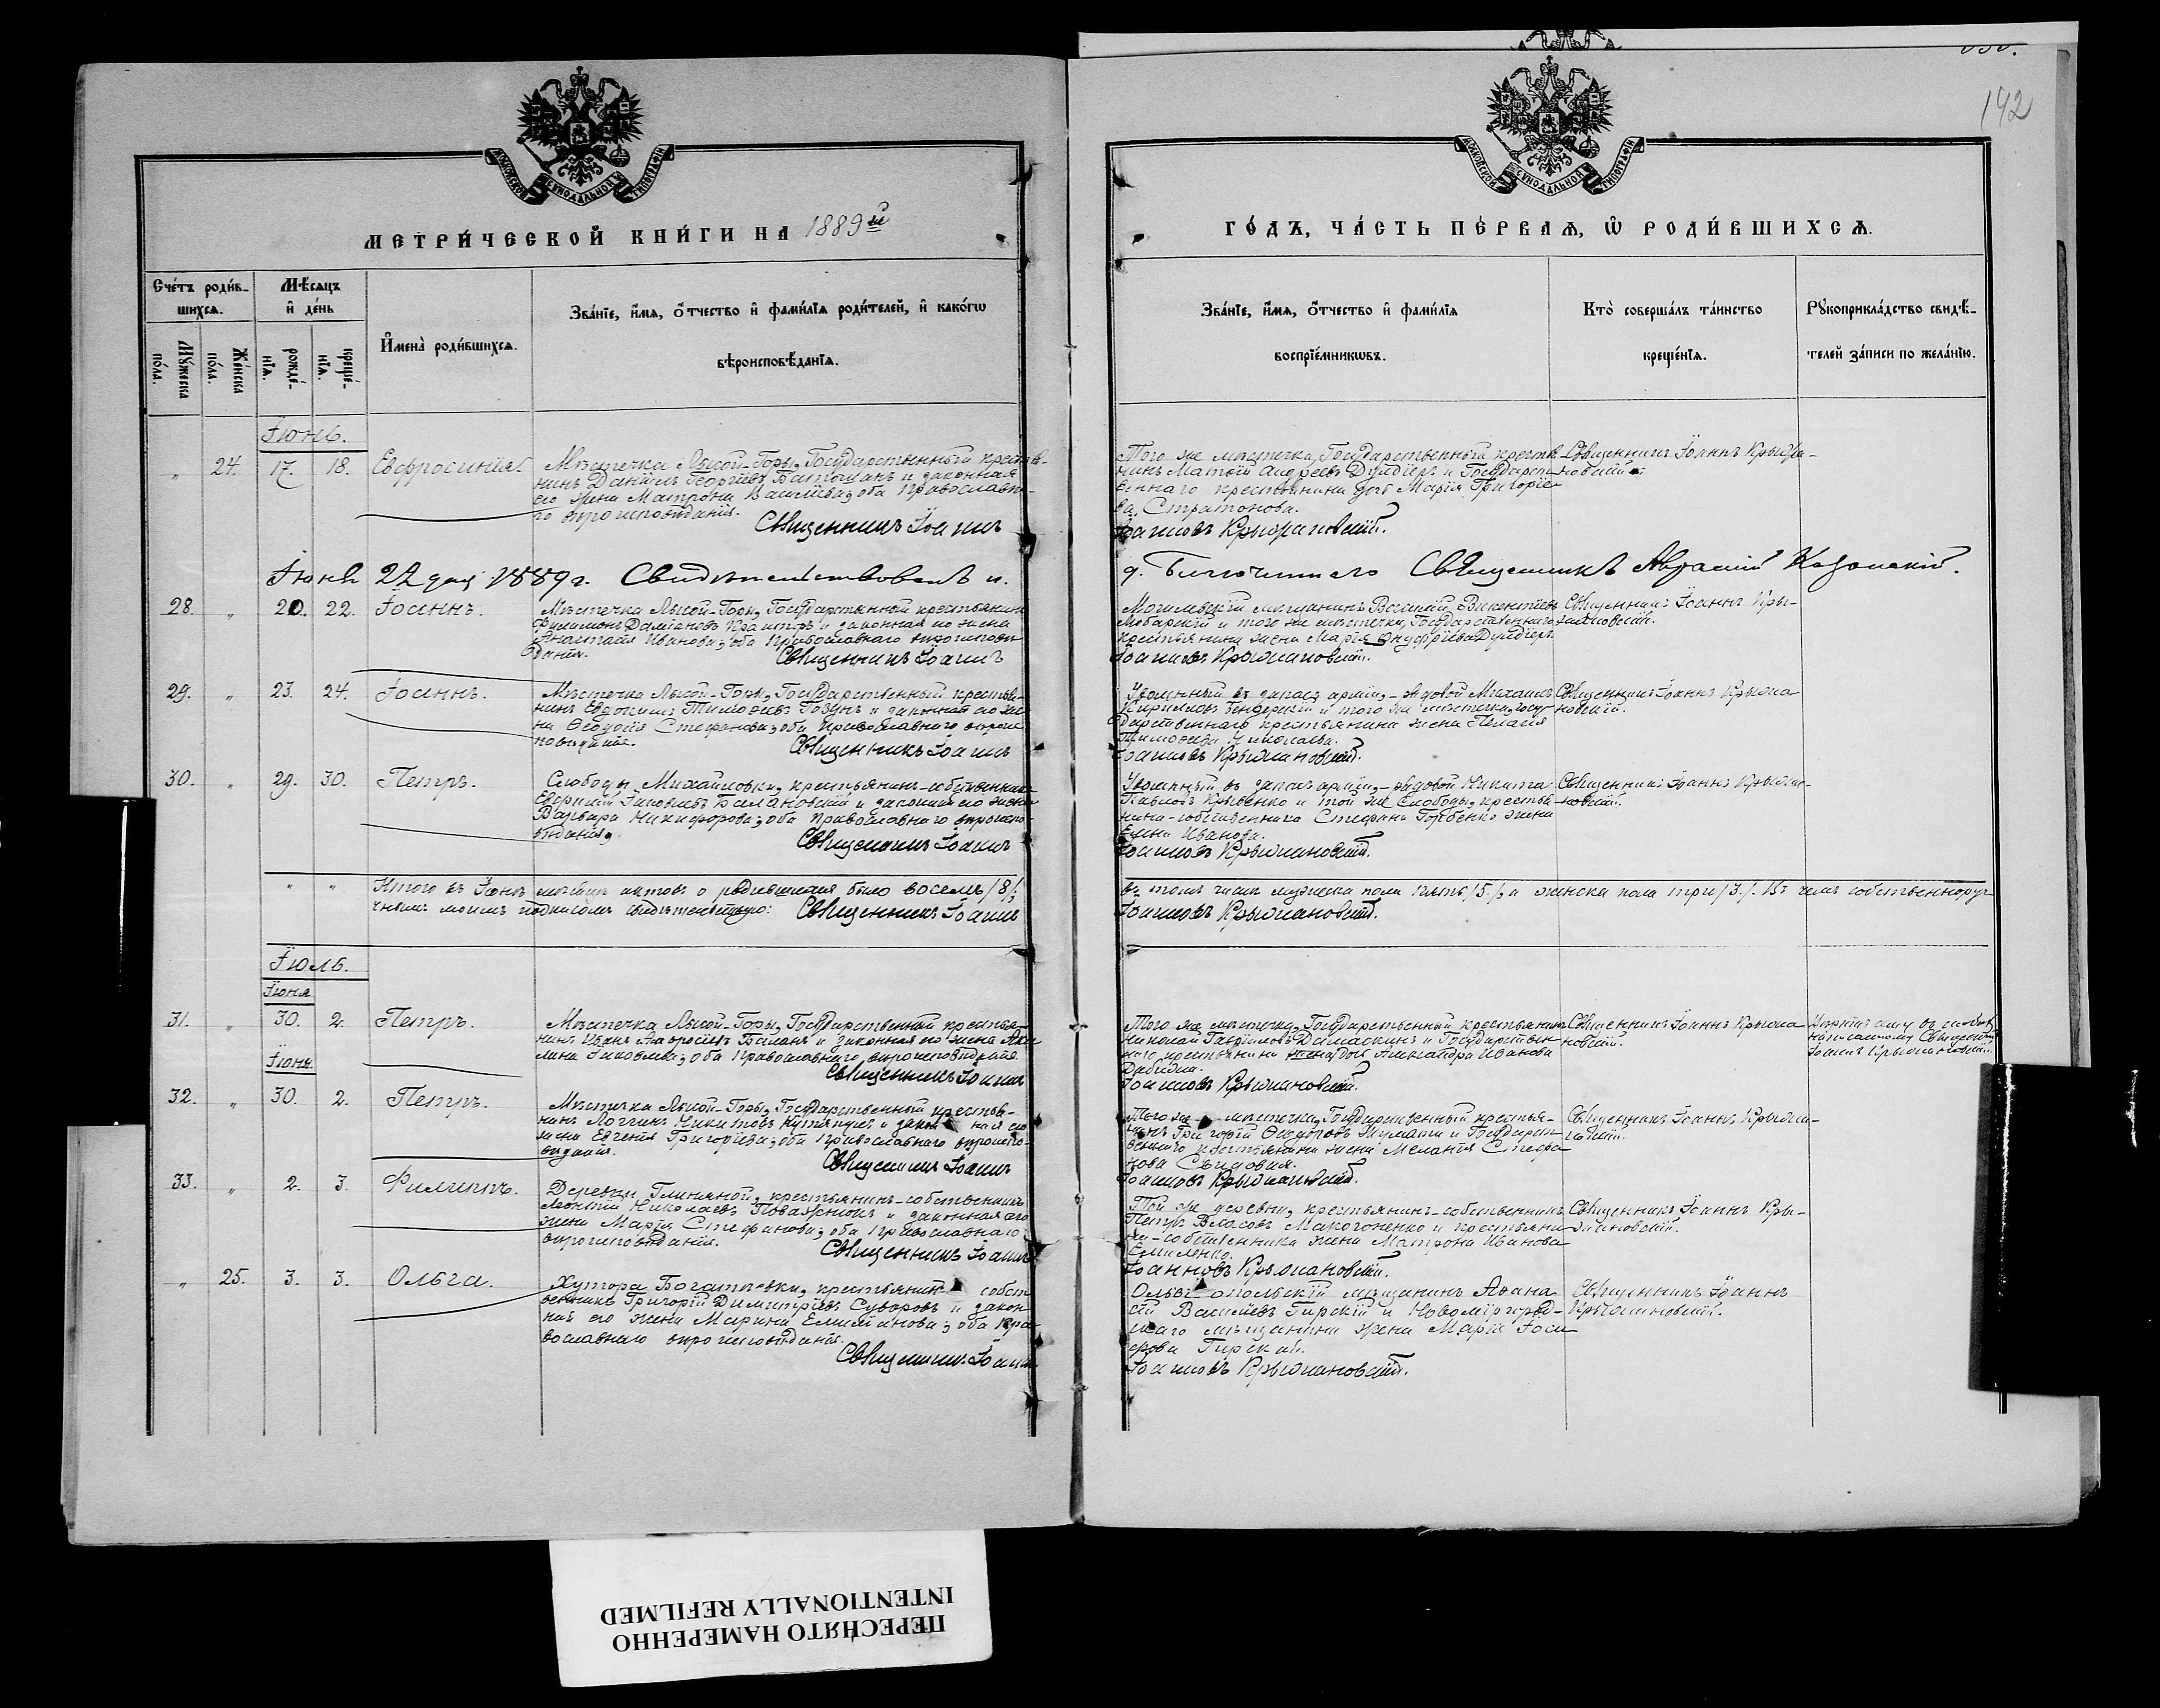 192
МОСКОВСКОЙ СУНОДАЛЬНОЙ ТИПОГРАФІИ
МОСКОВСКОЙ СУНОДАЛЬНОЙ ТИПОГРАФІИ
МЕТРИ́ЧЕСКОЙ КНИ́ГИ НА 1889й
ГО́ДЪ, ЧА́СТЬ ПЕ́РВАѦ, Ѡ РОДИ́ВШИХСѦ.
Сче́тъ роди́в-
шихсѧ.
Мꙋ́жеска по́ла.
Же́нска по́ла.
Мѣ́сѧцъ
и҆ де́нь
рожде́-нїѧ.
креще́-нїѧ.
И҆мена̀ роди́вшихсѧ.
Зва́нїе, и҆́мѧ, ѻ҆́тчество и҆ фами́лїѧ роди́телей, и҆ како́гѡ
вѣроисповѣ́данїѧ.
Зва́нїе, и҆́мѧ, ѻ҆́тчество и҆ фами́лїѧ
воспрїе́мникѡвъ.
Кто̀ соверша́лъ та́инство
креще́нїѧ.
Рꙋкоприкла́дство свидѣ́-
телей за́писи по жела́нїю.
Іюнь.
" 24. 17. 18. Евфросинія.
Мѣстечка Лысой-Горы, Государственный крестья-
нинъ Даніилъ Георгіевъ и законная
его жена Матрона Василіева, оба Православна-
го вѣроисповѣданія.
Священникъ Іоаннъ
Того же мѣстечка, Государственный крестья-
нинъ Матѳій Андреевъ и Государст-
веннаго крестьянина дочь Марія Григоріе-
ва Стратонова.
Іоанновъ Крыжановскій.
Священникъ Іоаннъ Крыжа-
новскій.
Іюня 22 дня 1889 г. Свидѣтельствовалъ и.
д. Благочиннаго Священникъ
28. " 20. 22. Іоаннъ.
Мѣстечка Лысой-Горы, Государственный крестьянинъ
Филимонъ Даміановъ и законная его жена
Анастасія Иванова, оба Православнаго вѣроисповѣ-
данія.
Священникъ Іоаннъ
мѣщанинъ Василій Викентіевъ
и того же мѣстечка, Государственнаго
крестьянина жена Марія Онуфріева
Іоанновъ Крыжановскій.
Священникъ Іоаннъ Кры-
жановскій.
29. " 23. 24. Іоаннъ.
Мѣстечка Лысой-Горы, Государственный крестья-
нинъ Евдокимъ Тимоѳеевъ и законная его же-
на Ѳеодосія Стефанова, оба Православнаго вѣроис-
повѣданія.
Священникъ Іоаннъ
Уволенный въ запасъ арміи, рядовой Михаилъ
Кирилловъ и того же мѣстечка, госу-
дарственнаго крестьянина жена Пелагія
Тимоѳеева
Іоанновъ Крыжановскій.
Священникъ Іоаннъ Крыжа
новскій.
30. " 29. 30. Петръ.
Слободы Михайловки, крестьянинъ-собственникъ
Іаковлевъ Балановскій и законная его жена
Варвара Никифорова, оба Православнаго вѣроиспо-
вѣданія.
Священникъ Іоаннъ
Уволенный въ запасъ арміи, рядовой Никита
Павловъ Кривенко и той же Слободы, крестья-
нина-собственника Стефана Горбенко жена
Елена Иванова.
Іоанновъ Крыжановскій.
Священникъ Іоаннъ Крыжа-
новскій.
" " Итого въ Іюнѣ мѣсяцѣ актовъ о родившихся было восемь /8/,
въ томъ числѣ мужеска пола пять /5/, а женска пола три /3/. Въ чемъ собственноруч-
нымъ моимъ подписомъ свидѣтельствую: Священникъ Іоаннъ
Іоанновъ Крыжановскій.
Іюль.
Іюня
31. " 30. 2. Петръ.
Мѣстечка Лысой-Горы, Государственный крестья-
нинъ Иванъ и законная его жена
Іаковлева, оба Православнаго вѣроисповѣданія.
Священникъ Іоаннъ
Того же мѣстечка, Государственный крестьянинъ
Николай Гавріиловъ и Государствен-
наго крестьянина дочь Александра Иванова
Іоанновъ Крыжановскій.
Священникъ Іоаннъ Крыжа
новскій.
Священникъ
Іоаннъ Крыжановскій.
Іюня
32. " 30. 2. Петръ.
Мѣстечка Лысой-Горы, Государственный крестья-
нинъ Логгинъ Никитовъ и законная его
жена Евгенія Григоріева, оба Православнаго вѣроиспо-
вѣданія.
Священникъ Іоаннъ
Того же мѣстечка, Государственный крестья-
нинъ Григорій Ѳеодоровъ и Государст-
веннаго крестьянина жена Меланія Стефа-
нова
Іоанновъ Крыжановскій.
Священникъ Іоаннъ Крыжа-
новскій.
33. " 2. 3. Филиппъ.
Деревни Глиняной, крестьянинъ-собственникъ
Леонтій Николаевъ и законная его
жена Марія Стефанова, оба Православнаго
вѣроисповѣданія.
Священникъ Іоаннъ
Той же деревни, крестьянинъ-собственникъ
Петръ Власовъ Макогоненко и крестьяни-
на-собственника жена Матрона Иванова
Іоанновъ Крыжановскій.
Священникъ Іоаннъ Кры-
жановскій.
" 25. 3. 3. Ольга.
Хутора крестьянинъ собст-
венникъ Григорій Димитріевъ Суворовъ и закон-
ная его жена Марина Емиліанова, оба Пра-
вославнаго вѣроисповѣданія.
Священникъ Іоаннъ
Ольвіопольскій мѣщанинъ Аѳана-
сій Василіевъ Гирскій и Новомиргород-
скаго мѣщанина жена Марія Іоси-
фова
Іоанновъ Крыжановскій.
Священникъ Іоаннъ
Крыжановскій.
ПЕРЕСНЯТО НАМЕРЕННО
INTENTIONALLY REFILMED